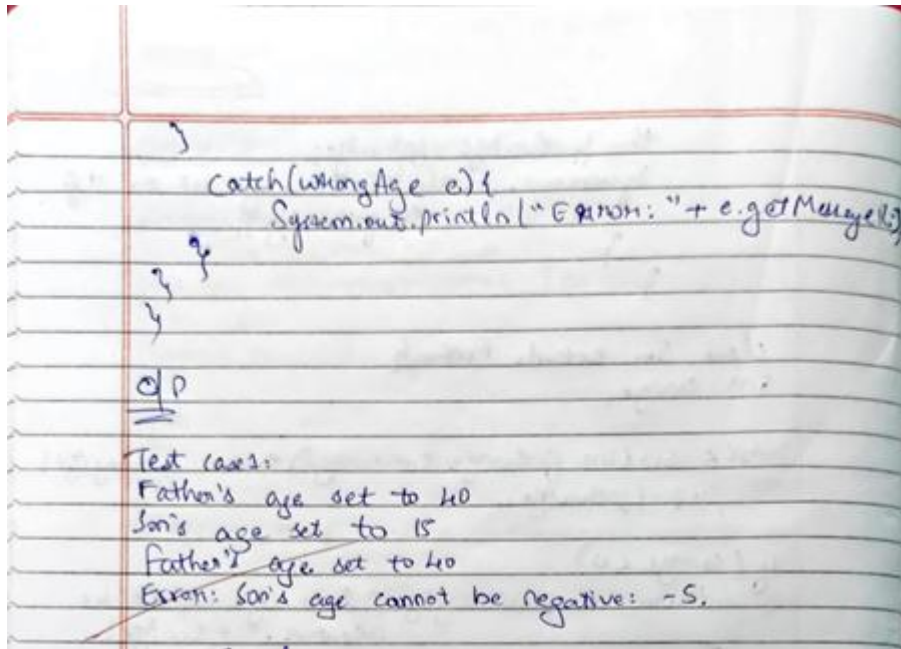 }
catch(WrongAge e){
System.out.println("Error: "+ e.getMessage();
}
}
}
O/P
Test cases:
Father's age set to 40
Son's age set to 15
Father's age set to 40
Error: Son's age cannot be negative: -5.